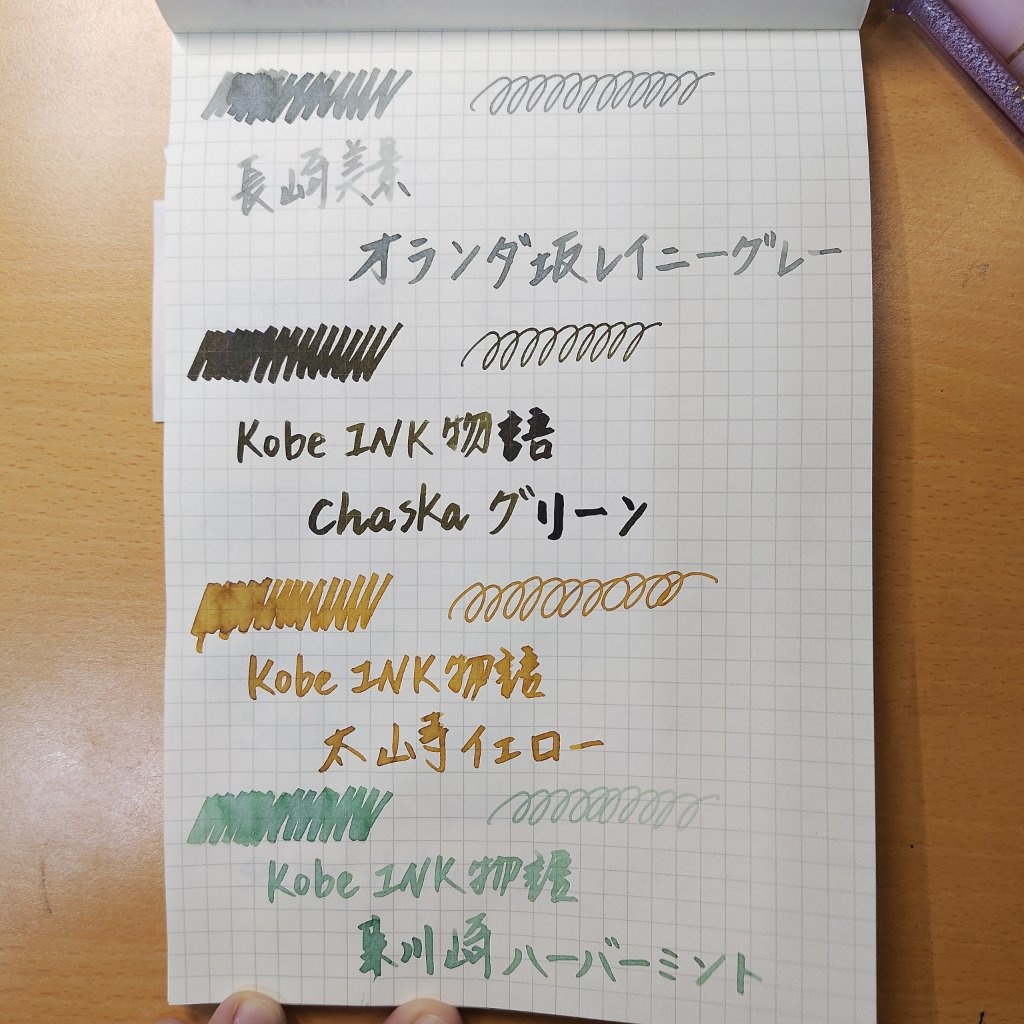 長崎美景
オランダ坂レイニーグレー
Kobe INK物語
Chaska グリーン
Kobe INK物語
太山寺イエロー
Kobe INK物語
東川崎ハーバーミント